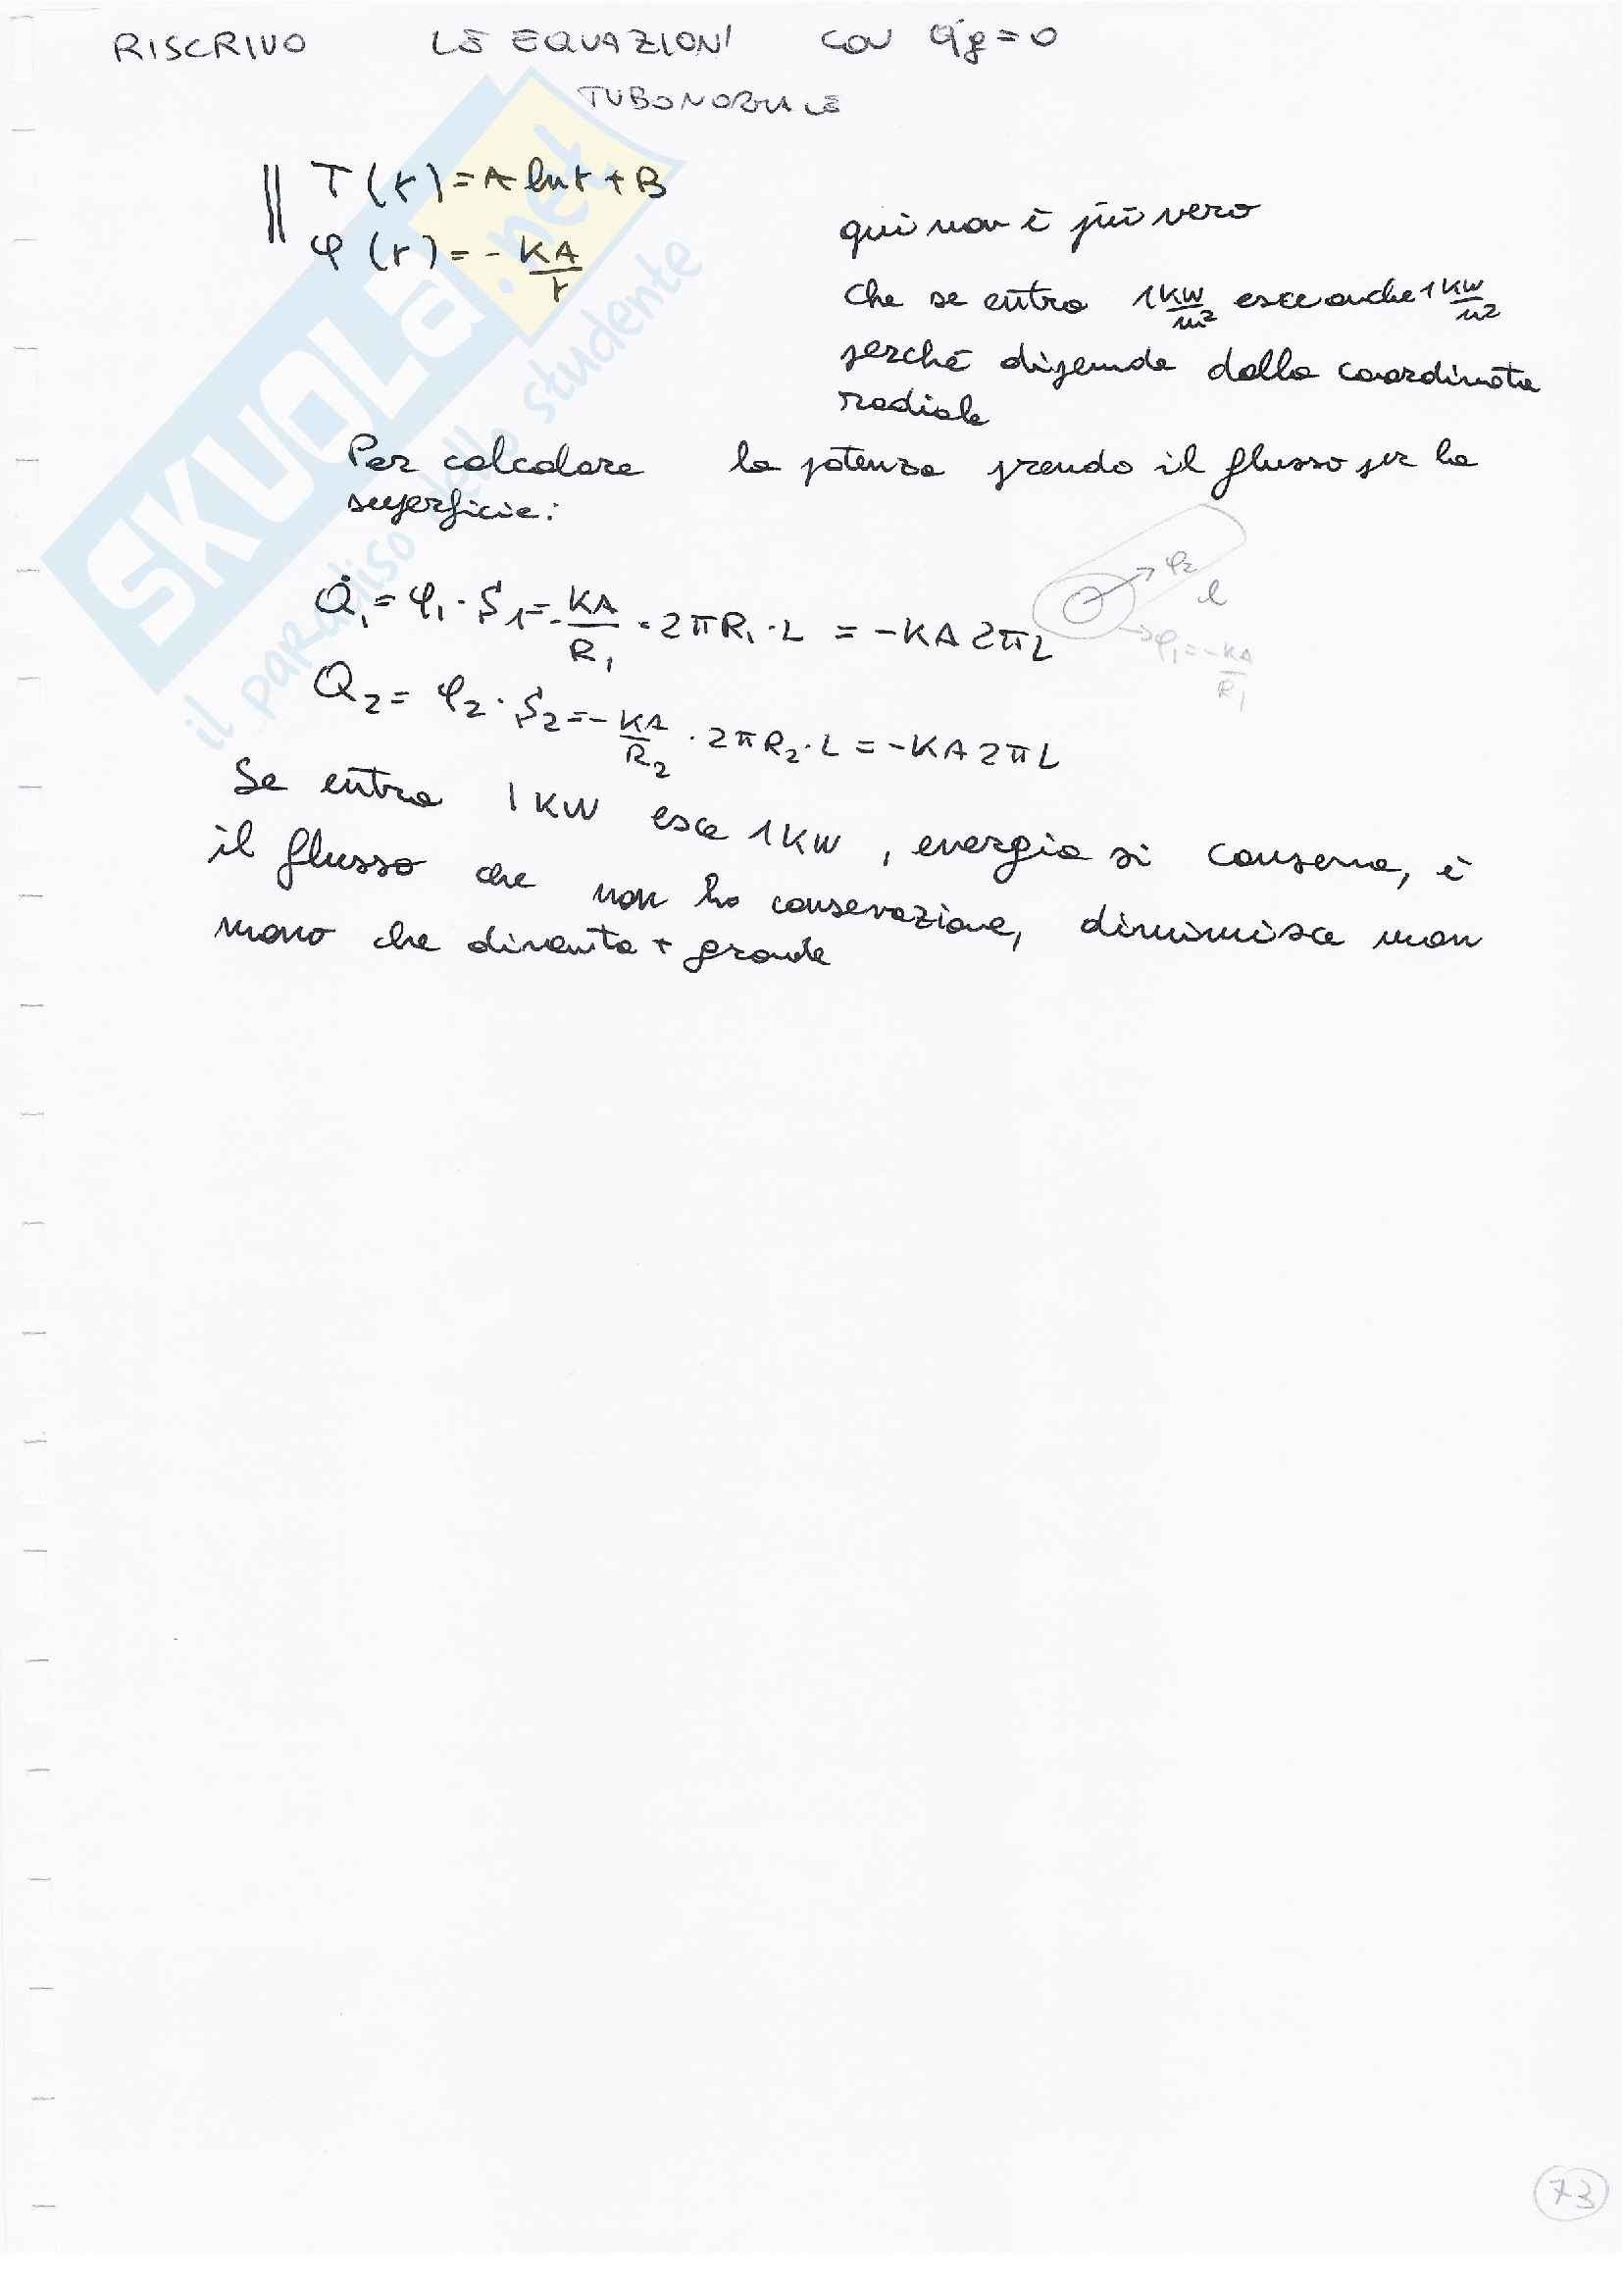 RISCRIVO LE EQUAZIONI CON q̇g = 0
TUBO NORMALE
T(r) = A ln r + B
φ(r) = - KA/r
qui non è più vero
che se entra 1 KW/m² esce anche 1 KW/m²
perché dipende dalla coordinata
radiale
Per calcolare la potenza prendo il flusso per la
superficie:
φ2
l
φ1 = -KA/R1
Q̇1 = φ1 · S1 = - KA/R1 · 2πR1 · L = -KA2πL
Q2 = φ2 · S2 = - KA/R2 · 2πR2 · L = -KA2πL
Se entra 1 KW esce 1 KW, energia si conserva, è
il flusso che non ha consevazione, diminuisce man
mano che diventa + grande
SKUOLA.net
il paradiso dello studente
73